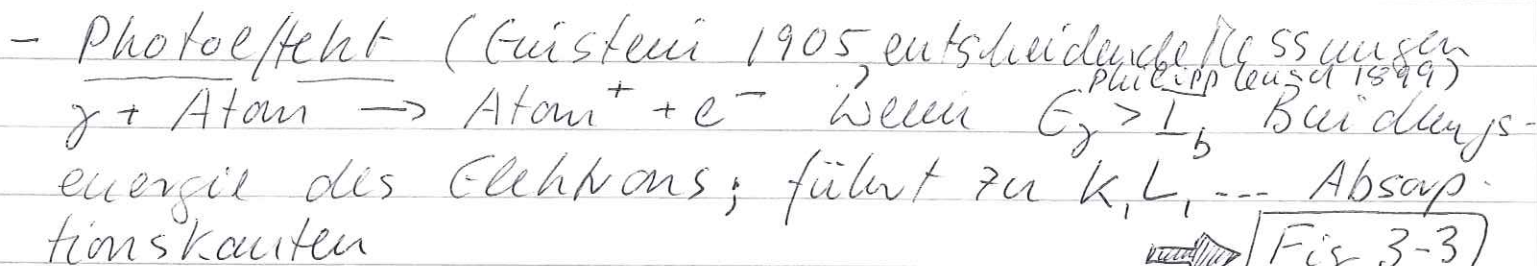 - Photoeffekt (Einstein 1905, entscheidende Messungen
Philipp Lenard 1899)
γ + Atom → Atom⁺ + e⁻ wenn E_γ > I_b Bindungs-
energie des Elektrons; führt zu K, L, ... Absorp-
tionskanten ⇒ Fig 3-3